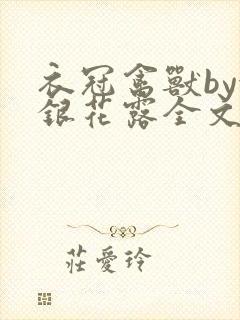 衣冠禽獸by
銀花露全文
莊愛玲